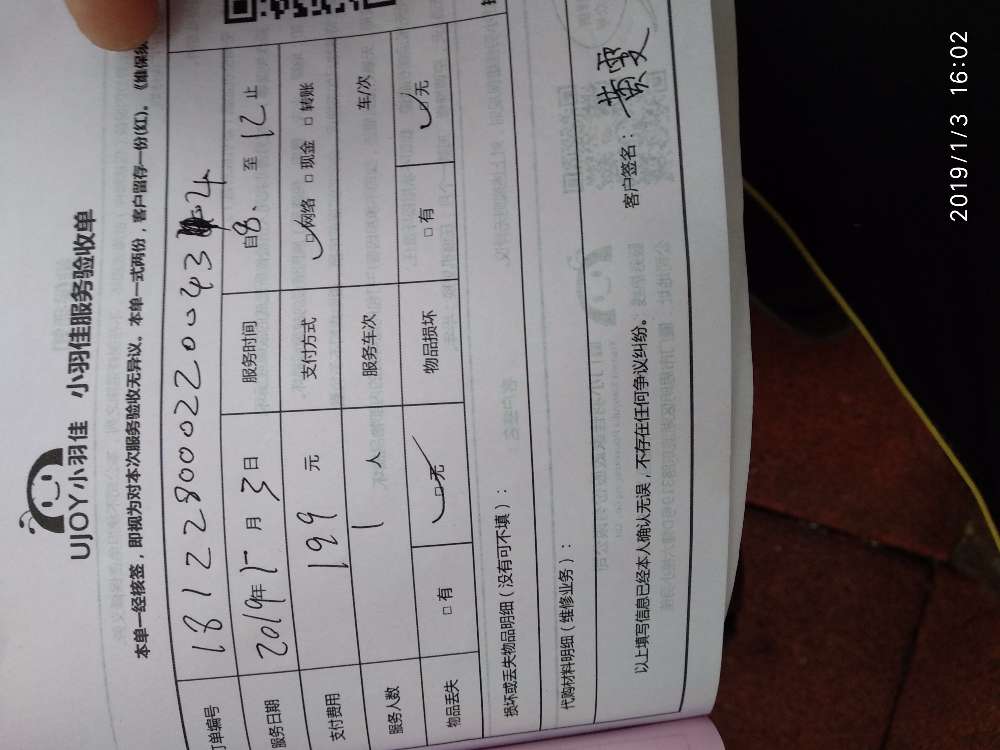 UJOY小羽佳 小羽佳服务验收单
本单一经核签，即视为对本次服务验收无异议。本单一式两份，客户留存一份(红)。《维保
订单编号 1812280002200434
服务日期 2019年1月3日 服务时间 自8、至12止
支付费用 199元 支付方式 □网络 □现金 □转账
服务人数 1人 服务车次 车/次
物品丢失 □有 □无 物品损坏 □有 □无
损坏或丢失物品明细（没有可不填）：
代购材料明细（维修业务）：
以上填写信息已经本人确认无误，不存在任何争议纠纷。 客户签名：黄雯
2019/1/3 16:02